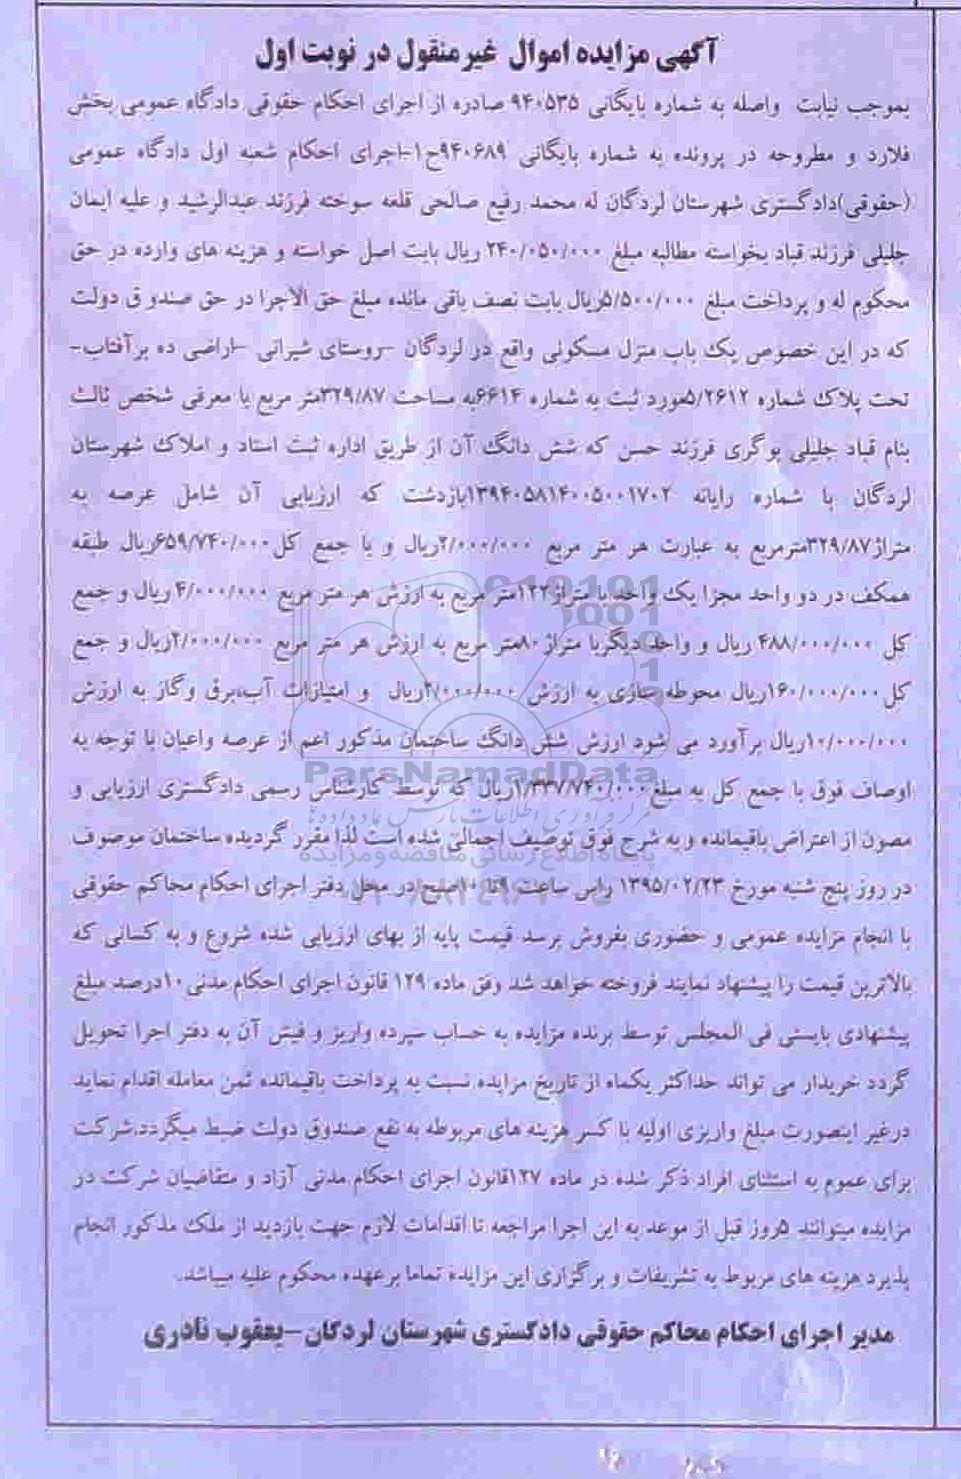 آگهی مزایده اموال غیرمنقول در نوبت اول
بموجب نیابت واصله به شماره بایگانی ۹۴۰۵۳۵ صادره از اجرای احکام حقوقی دادگاه عمومی بخش
فلارد و مطروحه در پرونده به شماره بایگانی ۹۴۰۶۸۹ح۱-اجرای احکام شعبه اول دادگاه عمومی
(حقوقی)دادگستری شهرستان لردگان له محمد رفیع صالحی قلعه سوخته فرزند عبدالرشید و علیه ایمان
جلیلی فرزند قباد بخواسته مطالبه مبلغ ۲۴۰/۰۵۰/۰۰۰ ریال بابت اصل خواسته و هزینه های وارده در حق
محکوم له و پرداخت مبلغ ۵/۵۰۰/۰۰۰ریال بابت نصف باقی مانده مبلغ حق الاجرا در حق صندو ق دولت
که در این خصوص یک باب منزل مسکونی واقع در لردگان -روستای شیرانی -اراضی ده برآفتاب-
تحت پلاک شماره ۵/۲۶۱۲مورد ثبت به شماره ۶۶۱۴به مساحت ۳۲۹/۸۷متر مربع با معرفی شخص ثالث
بنام قباد جلیلی بوگری فرزند حسن که شش دانگ آن از طریق اداره ثبت اسناد و املاک شهرستان
لردگان با شماره رایانه ۱۳۹۴۰۵۸۱۴۰۰۵۰۰۱۷۰۲بازدشت که ارزیابی آن شامل عرصه به
متراژ۳۲۹/۸۷مترمربع به عبارت هر متر مربع ۲/۰۰۰/۰۰۰ریال و با جمع کل۶۵۹/۷۴۰/۰۰۰ریال طبقه
همکف در دو واحد مجزا یک واحد با متراژ۱۲۲متر مربع به ارزش هر متر مربع ۴/۰۰۰/۰۰۰ ریال و جمع
کل ۴۸۸/۰۰۰/۰۰۰ ریال و واحد دیگربا متراژ۸۰متر مربع به ارزش هر متر مربع ۲/۰۰۰/۰۰۰ریال و جمع
کل۱۶۰/۰۰۰/۰۰۰ریال محوطه سازی به ارزش ۲۰/۰۰۰/۰۰۰ریال و امتیازات آب،برق وگاز به ارزش
۱۰/۰۰۰/۰۰۰ریال برآورد می شود ارزش شش دانگ ساختمان مذکور اعم از عرصه واعیان با توجه به
ParsNamadData
اوصاف فوق با جمع کل به مبلغ۱/۳۳۷/۷۴۰/۰۰۰ریال که توسط کارشناس رسمی دادگستری ارزیابی و
مرکز فرآوری اطلاعات پارس نماد داده ها
مصون از اعتراض باقیمانده و به شرح فوق توصیف اجمالی شده است لذا مقرر گردیده ساختمان موصوف
پایگاه اطلاع رسانی مناقصه و مزایده
در روز پنج شنبه مورخ ۱۳۹۵/۰۲/۲۳ راس ساعت ۹تا ۱۰صبح در محل دفتر اجرای احکام محاکم حقوقی
با انجام مزایده عمومی و حضوری بفروش برسد قیمت پایه از بهای ارزیابی شده شروع و به کسانی که
بالاترین قیمت را پیشنهاد نمایند فروخته خواهد شد وفق ماده ۱۲۹ قانون اجرای احکام مدنی۱۰درصد مبلغ
پیشنهادی بایستی فی المجلس توسط برنده مزایده به حساب سپرده واریز و فیش آن به دفتر اجرا تحویل
گردد خریدار می تواند حداکثر یکماه از تاریخ مزایده نسبت به پرداخت باقیمانده ثمن معامله اقدام نماید
درغیر اینصورت مبلغ واریزی اولیه با کسر هزینه های مربوطه به نفع صندوق دولت ضبط میگردد.شرکت
برای عموم به استثنای افراد ذکر شده در ماده ۱۲۷قانون اجرای احکام مدنی آزاد و متقاضیان شرکت در
مزایده میتوانند ۵روز قبل از موعد به این اجرا مراجعه تا اقدامات لازم جهت بازدید از ملک مذکور انجام
پذیرد هزینه های مربوط به تشریفات و برگزاری این مزایده تماما برعهده محکوم علیه میباشد.
مدیر اجرای احکام محاکم حقوقی دادگستری شهرستان لردگان-یعقوب نادری